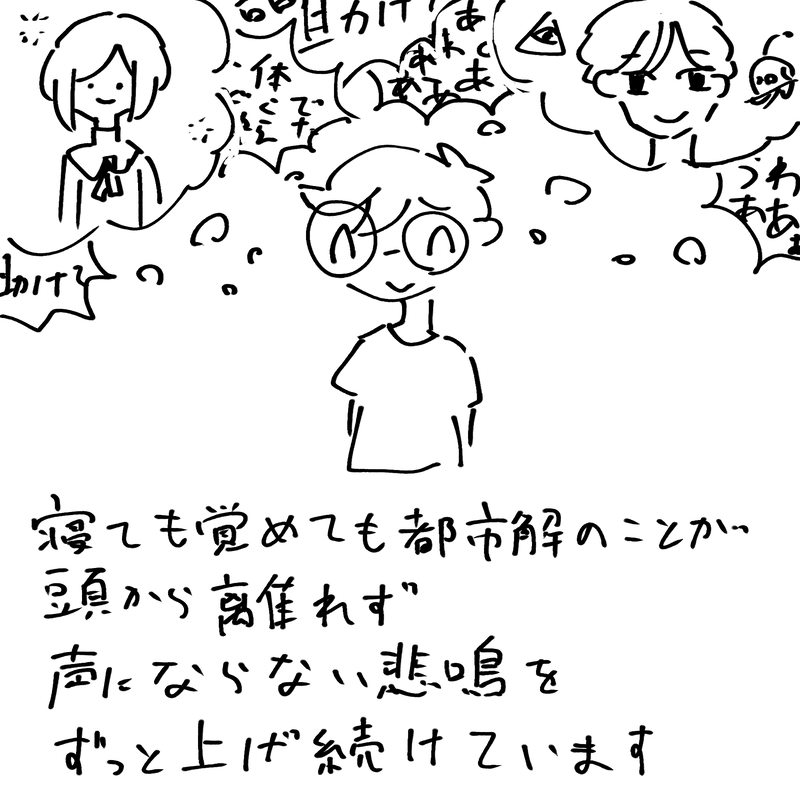 助けて
うわ
ああ
あ
寝ても覚めても都市解のことが
頭から離れず
声にならない悲鳴を
ずっと上げ続けています